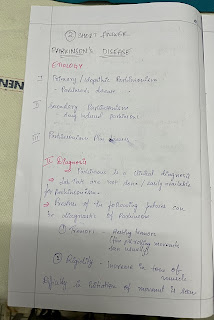 ② SHORT ANSWER
PARKINSON'S DISEASE
ETIOLOGY
I Primary / Idiopathic Parkinsonism
- Parkinson's disease
II Secondary Parkinsonism
- drug induced parkinson
III Parkinsonism Plus
II Diagnosis
⇒ Parkinson is a clinical diagnosis
⇒ Lab tests are not done / easily available
for parkinsonism
⇒ Presence of the following features can
be diagnosed as Parkinson
① Tremor - Resting tremors
Pin pill rolling movements
② Rigidity - Increase in tone of
muscle
difficulty in initiation of movement is seen